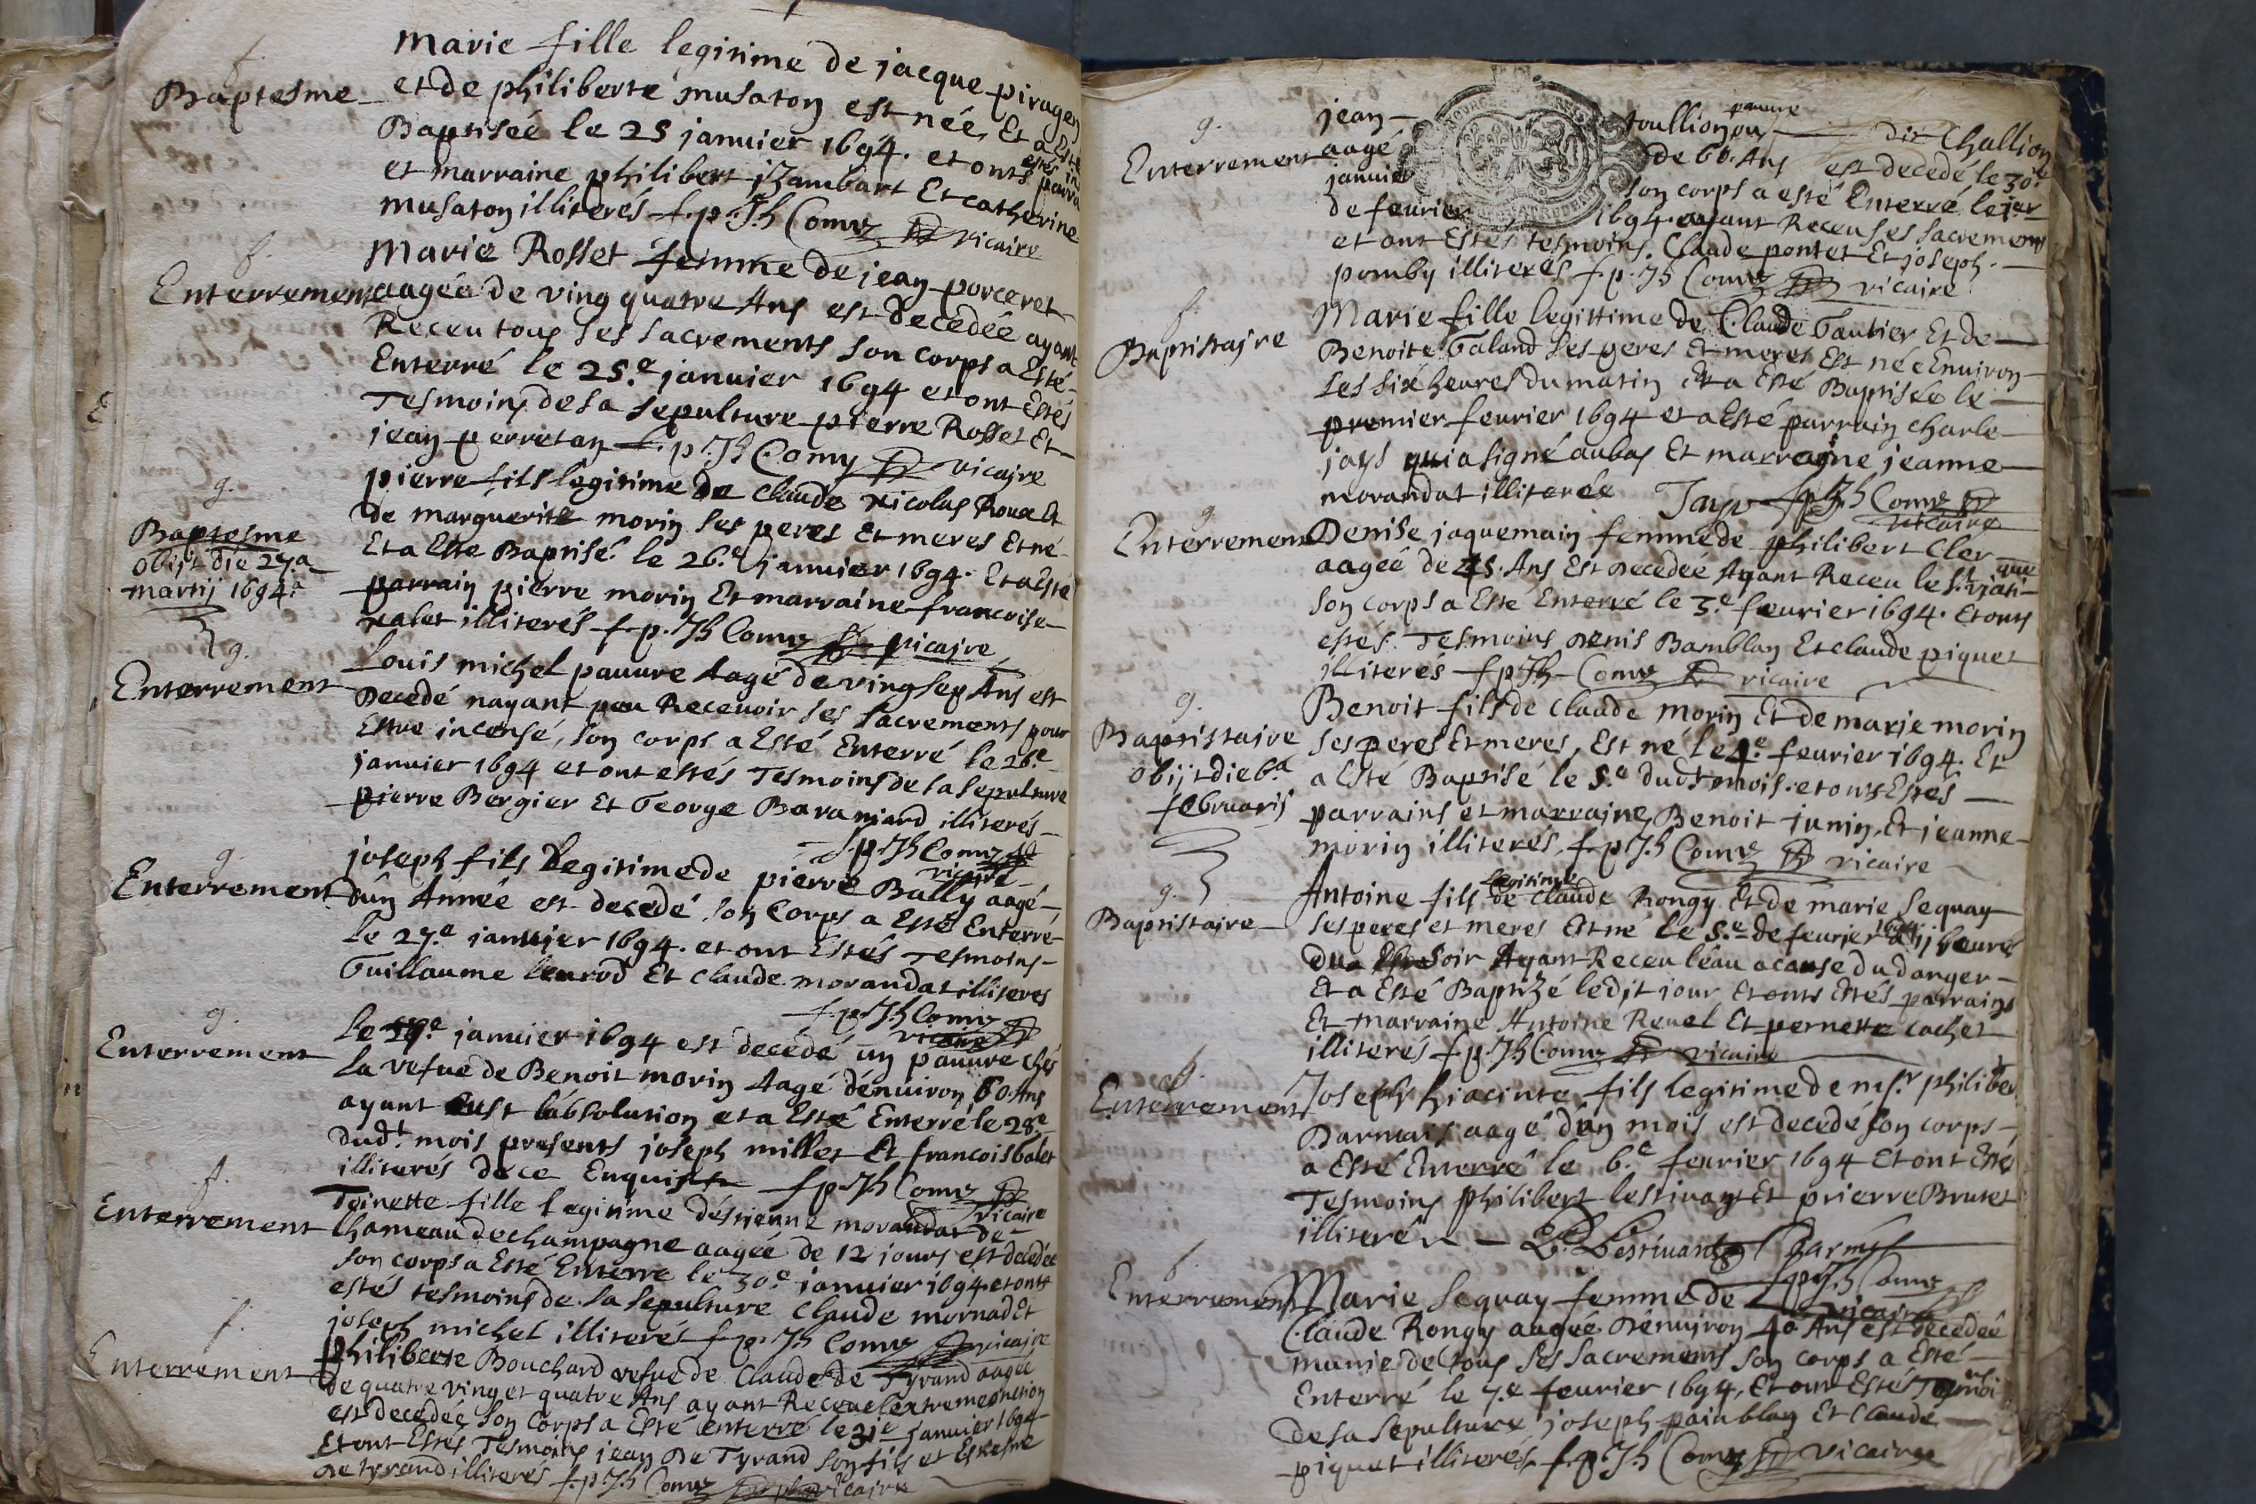 f.
Baptesme
Marie fille legitime de jacque piragey
et de philiberte musaton est née, Et a Esté
Baptisée le 25 janvier 1694. et onts estés
et marraine philibert jZambart Et catherine
musaton illiterés f. p. Jh Comz vicaire
f.
Enterrement
Marie Rosset femme de jean porceret
aagée de ving quatre Ans est decedée ayant
Receu tous ses sacrements son corps a Esté
Enterré le 25.e janvier 1694 et ont Estés
Tesmoins de sa sepulture pierre Rosset Et
jean perretan f. p. Jh Comz vicaire
g.
Baptesme
obijt die 27.a
martij 1694.
pierre fils legitime de claude nicolas Roux Et
de marguerite morin ses peres Et meres Et né
Et a Este Baptisé le 26.e janvier 1694. Et a Esté
parrain pierre morin Et marraine francoise
nalet illiterés f. p. Jh Comz vicaire
g.
Enterrement
Louis michel pauvre Aagé de ving sep Ans est
Decedé nayant peu Recevoir ses sacrements pour
Estre incensé, son corps a Esté Enterré le 26.e
janvier 1694 et ont estés Tesmoins de la sepulture
pierre Bergier Et George Baraniard illiterés
f. p. Jh Comz
vicaire
g.
Enterrement
joseph fils Legitime de pierre Bally aagé
dún Année est decedé son Corps a Esté Enterré
le 27.e janvier 1694. et ont Estés Tesmoins
Guillaume lenrod Et claude morandat illiteres
f. p. Jh Comz
vicaire
g.
Enterrement
Le janvier 1694 est decedé un pauvre Chés
la vefue de Benoit morin Aagé dénuiron 60. Ans
ayant eust lábsolution et a Esté Enterré le 28.e
dudt. mois presents joseph millet Et francois balet
illiterés de ce Enquis f. p. Jh Comz
vicaire
f.
Enterrement
Toinette fille legitime déstienne morandat de
Chameau de champagne aagée de 12 jours est decedée
son corps a Esté Enterre le 30.e janvier 1694 et onts
estés tesmoins de sa sepulture claude mornad Et
joseph michel illiterés f. p. Jh Comz vicaire
f.
Enterrement
philiberte Bouchard vefue de Claude de Tyrand aagée
de quatre ving et quatre Ans ayant Receue lextremeonction
est decedée son Corps a Esté enterré le 31.e janvier 1694
Et ont Estés Tesmoins jean De Tyrand son fils et Estiesne
De tyrand illiterés f. p. Jh Comz vicaire
g.
Enterrement
jean toullion pauvre dit Challion
aagé de 60. Ans est decedé le 30.e
janvier son corps a esté Enterré le jer
de feurier 1694. ayant Receu ses sacrements
et ont Estés tesmoins Claude pontet Et joseph
pomby illiterés f. p. Jh Comz vicaire
f.
Baptistajre
Marie fille legittime de Claude Gautier Et de
Benoite Galand ses peres Et meres Est née Enuiron
les six heures du matin Et a Esté Baptisée le
premier feurier 1694 et a Esté parrain charle
jays qui a signé au bas Et marraine jeanne
morandat illiterée Jays f. p. Jh Comz
vicaire
g.
Enterrement
Denise jaquemain femme de philibert Cler
aagée de 45. Ans Est Decedée Ayant Receu le St. viati-que
son corps a Esté Enterré le 3.e feurier 1694. Et onts
estés Tesmoins Denis Bamblan Et claude piquet
illiteres f. p. Jh Comz vicaire
g.
Baptistaire
obijt die 6.a
februarij
Benoit fils de Claude morin Et de marje morin
ses peres Et meres, Est né le 4.e feurier 1694. Et
a Esté Baptisé le 5.e dudt mois. et onts Estés
parrains et marrajne, Benoit junin, Et jeanne
morin illiterés. f. p. Jh Comz vicaire
g.
Baptistaire
Antoine fils legitime de Claude Rongy Et de marie Sequay
ses peres et meres Est né le 5.e de feurier 1694 a ij heures
du soir Ayant Receu léau a cause du danger
Et a Esté Baptizé ledjt jour Et onts Estés parrains
Et marraine Antoine Reuel Et pernette cachet
illiterés f. p. Jh Comz vicaire
g.
Enterrement
Joseph hiacinte fils legitime de msr. philibert
Darmais aagé dún mois est decedé son corps
a Esté Enterré le 6.e feurier 1694 Et ont Esté
Tesmoins philibert lestivant Et prierre Brutet
illiteré Lestivant
f. p. Jh Comz
vicaire
f.
Enterrement
Marie Sequay femme de
Claude Rongy aagée Dénuiron 40 Ans est decedée
munie de tous ses sacrements son corps a Esté
Enterré le 7.e feurier 1694, Et ont Estés Tesmoins
de sa sepulture joseph painblan Et Claude
piquet illiterés. f. p. Jh Comz vicaire